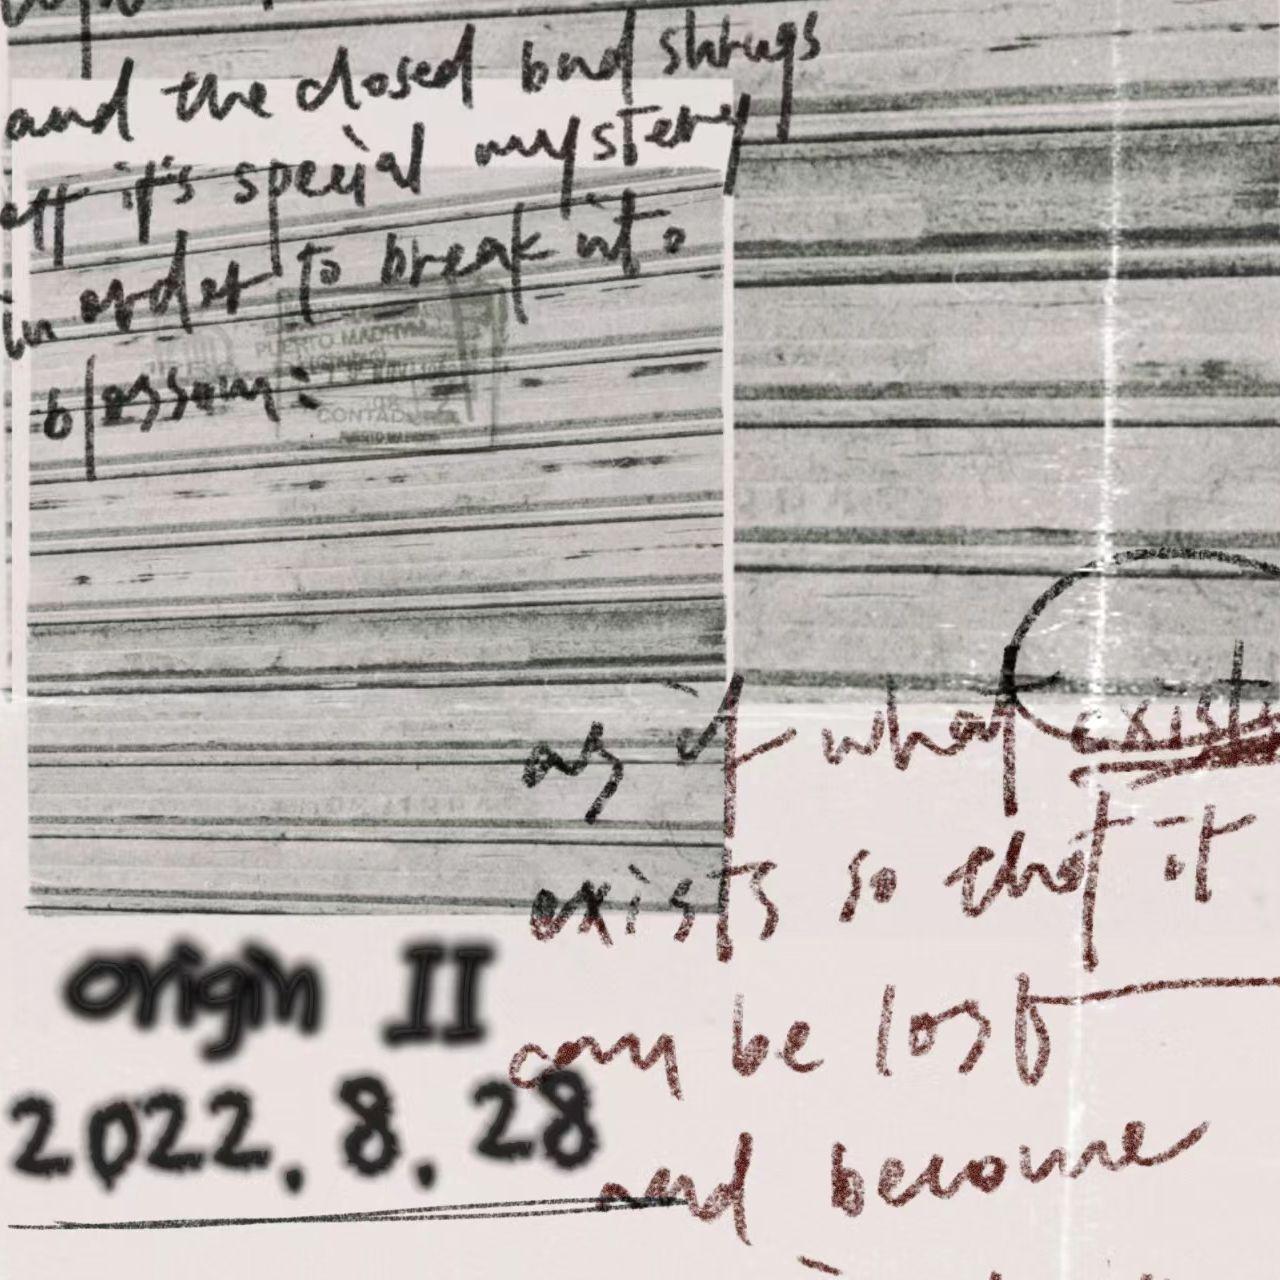 and the closed bud shrugs
off it's special mystery
in order to break into
blossom:
PUERTO MADRYN
CONTADURIA
as if what exists
exists so that it
can be lost
and become
origin II
2022.8.28